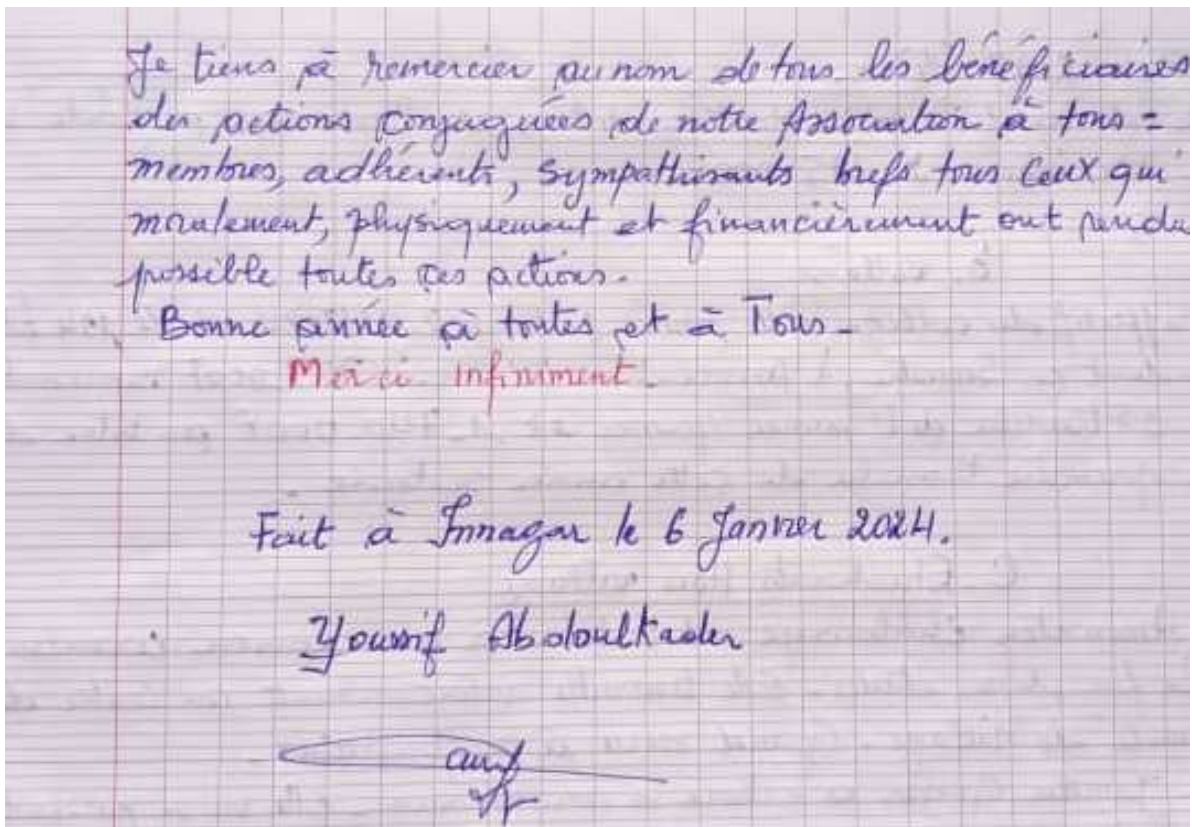 Je tiens à remercier au nom de tous les bénéficiaires
des actions conjuguées de notre Association à tous =
membres, adhérents, sympathisants brefs tous ceux qui
moralement, physiquement et financièrement ont rendu
possible toutes ces actions.
Bonne année à toutes et à Tous -
Merci infiniment
Fait à Innagar le 6 Janvier 2024.
Youssif Abdoulkader